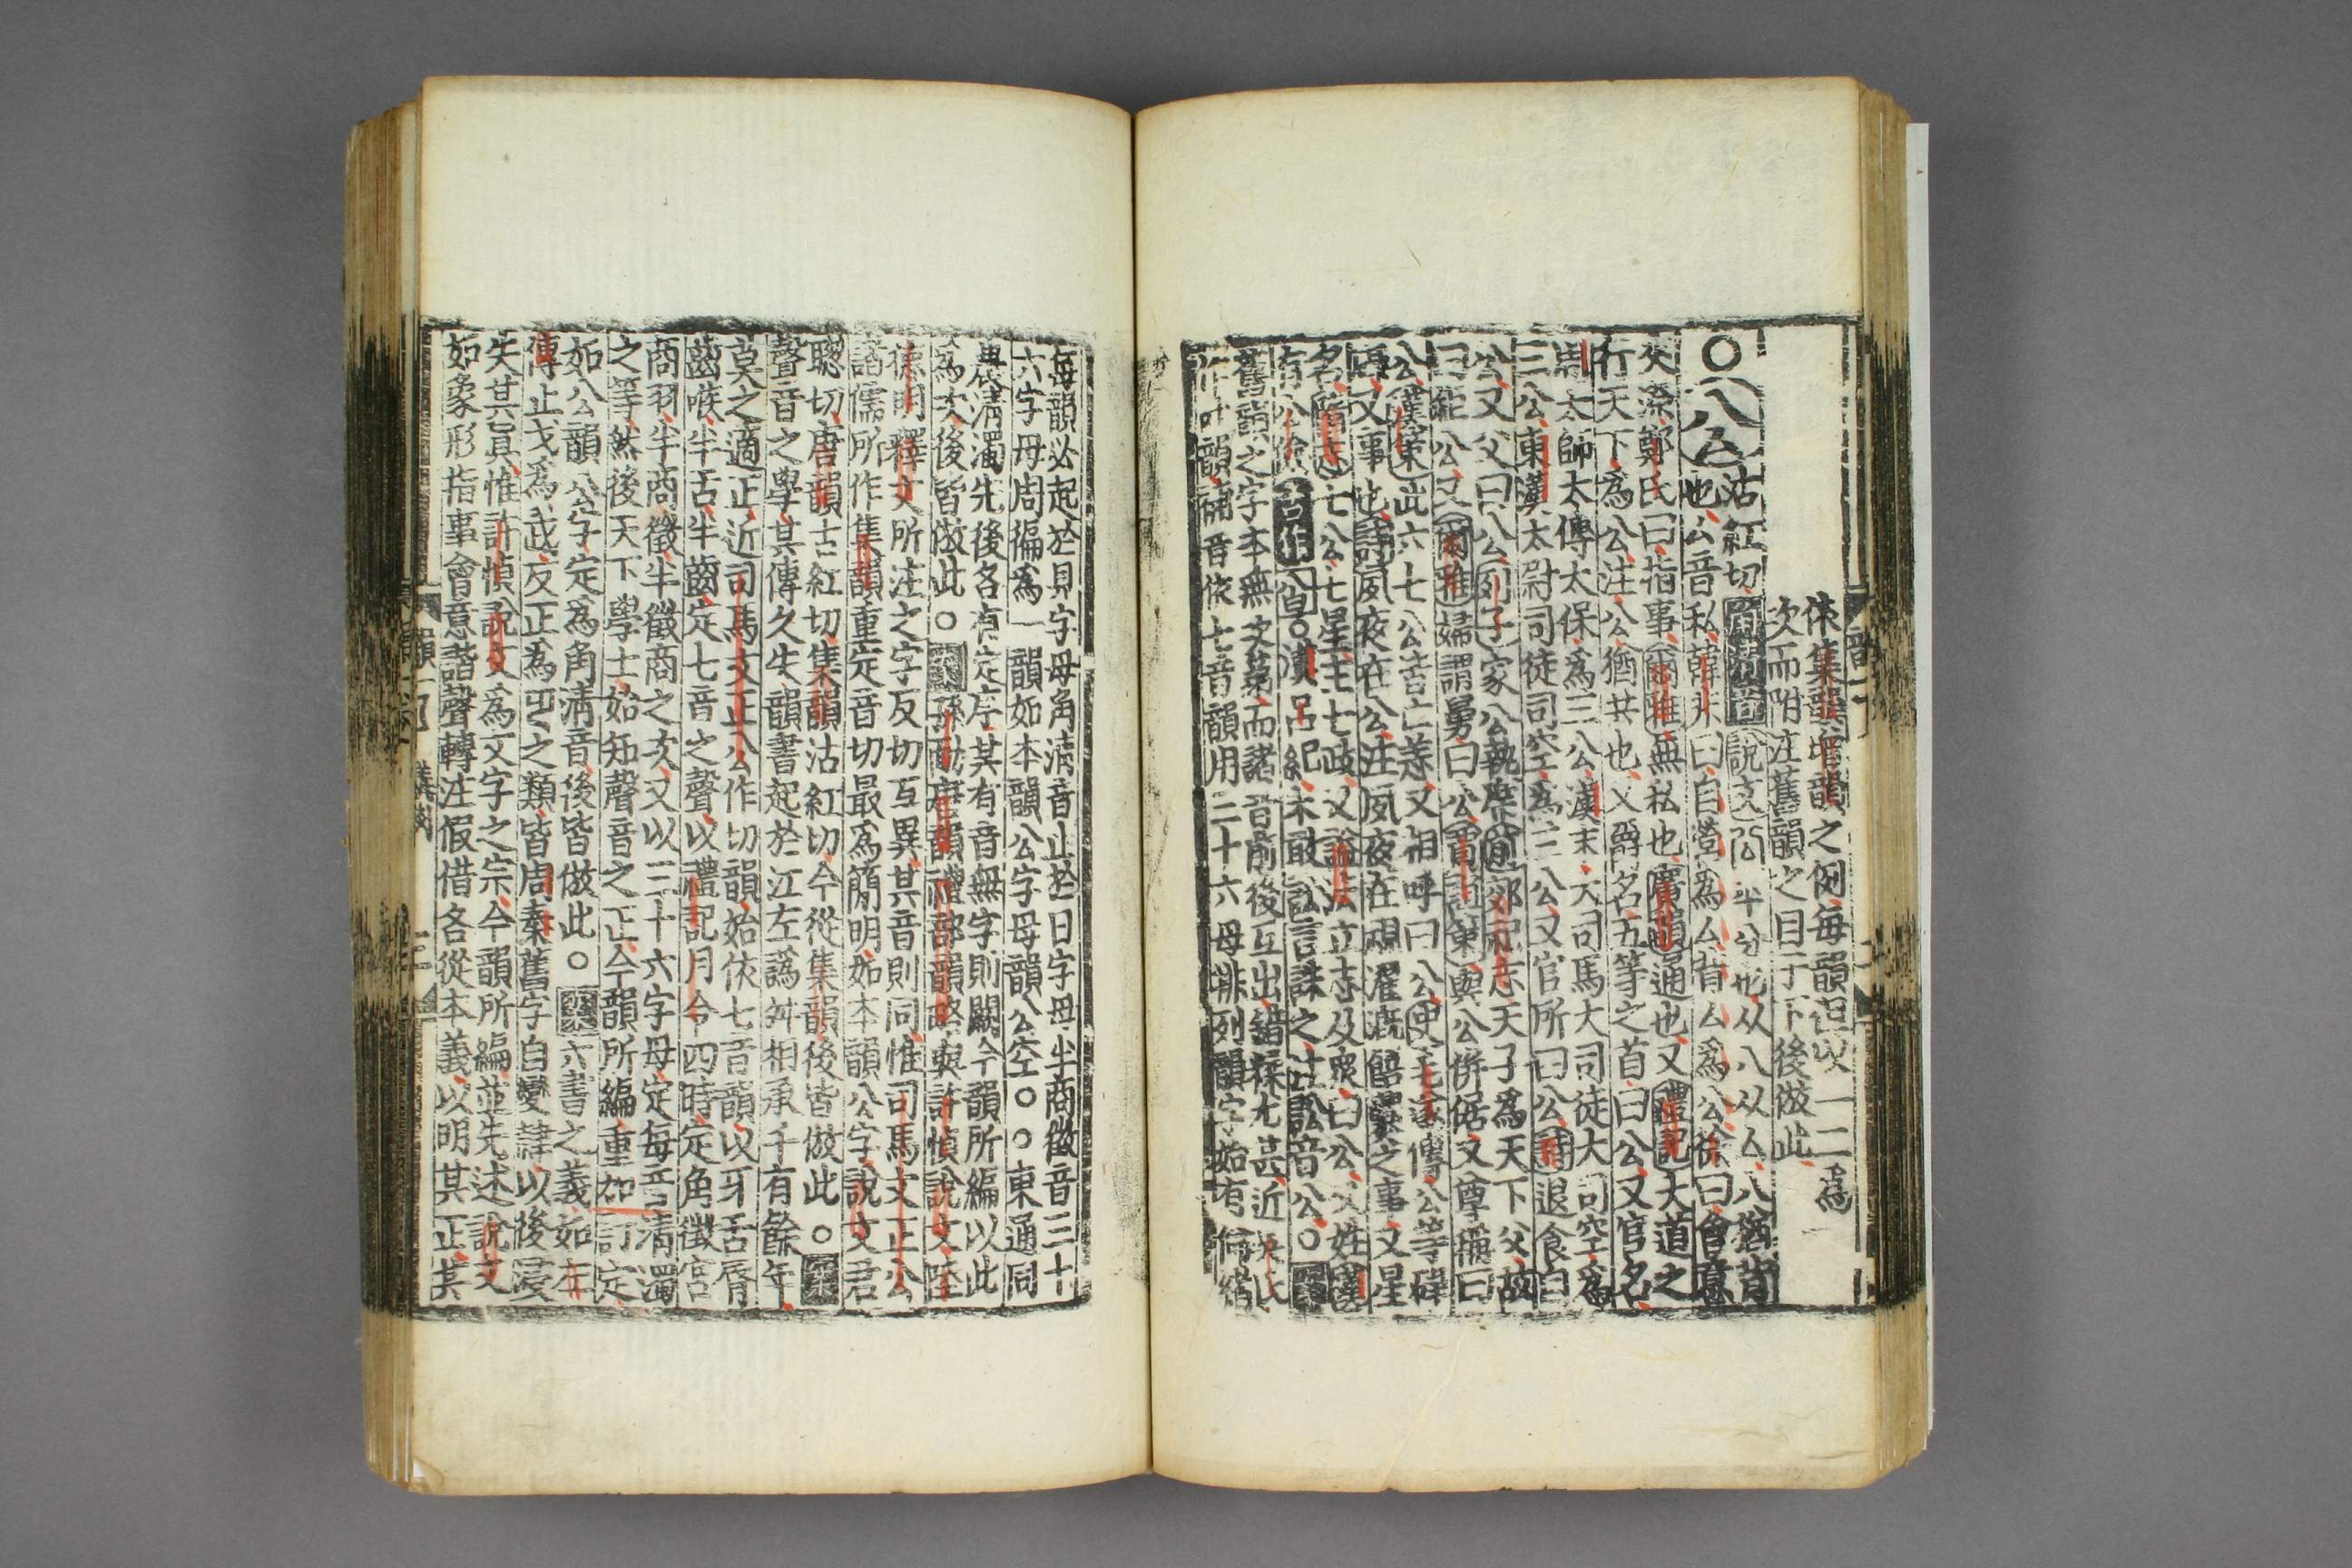 依集韻增韻之例每韻但以一二爲
次而附注舊韻之目于下後倣此
○公沽紅切
說文公平分也从八从厶八猶背
也厶音私韓非曰自營爲厶背厶爲公徐曰會意
爾雅無私也廣韻通也又禮記大道之
行天下爲公注公猶共也又爵名五等之首曰公又官名
周太師太傅太保爲三公漢末大司馬大司徒大司空爲
三公東漢太尉司徒司空爲三公又官所曰公詩退食自
公又父曰公列子家公執席前郊祀志天子爲天下父故
曰鉅公又爾雅婦謂舅曰公賈誼策與公倂倨又尊稱曰
公漢策此六七公皆亡恙又相呼曰公史毛遂傳公等碌
碌又事也詩夙夜在公注夙夜在視濯漑饎爨之事又星
名隋志七公七星主七政又諡法立志及衆曰公又姓漢
有公儉
呂紀未敢訟言誅之注訟音公○
舊韻之字本無次第而諸音前後互出錯糅尤甚近吳氏
作叶韻補音依七音韻用三十六母排列韻字始有倫緒
每韻必起於見字母角清音止於日字母半商徵音三十
六字母周徧爲一韻如本韻公字母韻公空○○東通同
農清濁先後各有定序其有音無字則闕今韻所編以此
爲次後皆倣此○孫愐唐韻禮部韻略與許愼說文陸
德明釋文所注之字反切互異其音則同惟司馬文正公
諸儒所作集韻重定音切最爲簡明如本韻公字說文君
聰切唐韻古紅切集韻沽紅切今從集韻後皆倣此○
聲音之學其傳久失韻書起於江左譌舛相承千有餘年
莫之適正近司馬文正公作切韻始依七音韻以牙舌脣
齒喉半舌半齒定七音之聲以禮記月令四時定角徵宮
商羽半商徵半徵商之次又以三十六字母定每音清濁
之等然後天下學士始知聲音之正今韻所編重加訂定
如公韻公字定爲角清音後皆倣此○六書之義如左
傳止戈爲武反正爲乏之類皆周秦舊字自變隸以後浸
失其眞惟許愼說文爲文字之宗今韻所編並先述說文
如象形指事會意諧聲轉注假借各從本義以明其正其